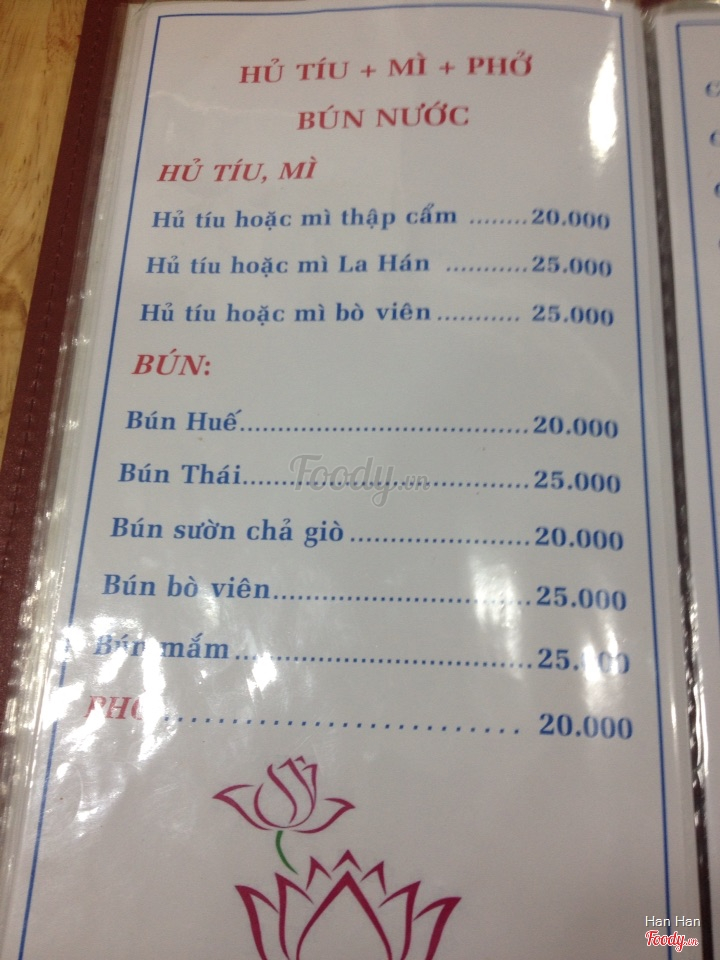 HỦ TÍU + MÌ + PHỞ
BÚN NƯỚC
HỦ TÍU, MÌ
Hủ tíu hoặc mì thập cẩm ........20.000
Hủ tíu hoặc mì La Hán ...........25.000
Hủ tíu hoặc mì bò viên........... 25.000
BÚN:
Bún Huế......................................20.000
Bún Thái......................................25.000
Bún sườn chả giò........................20.000
Bún bò viên..................................25.000
Bún mắm.......................................25.000
PHỞ............................ 20.000
Foody.vn
Han Han
Foody.vn